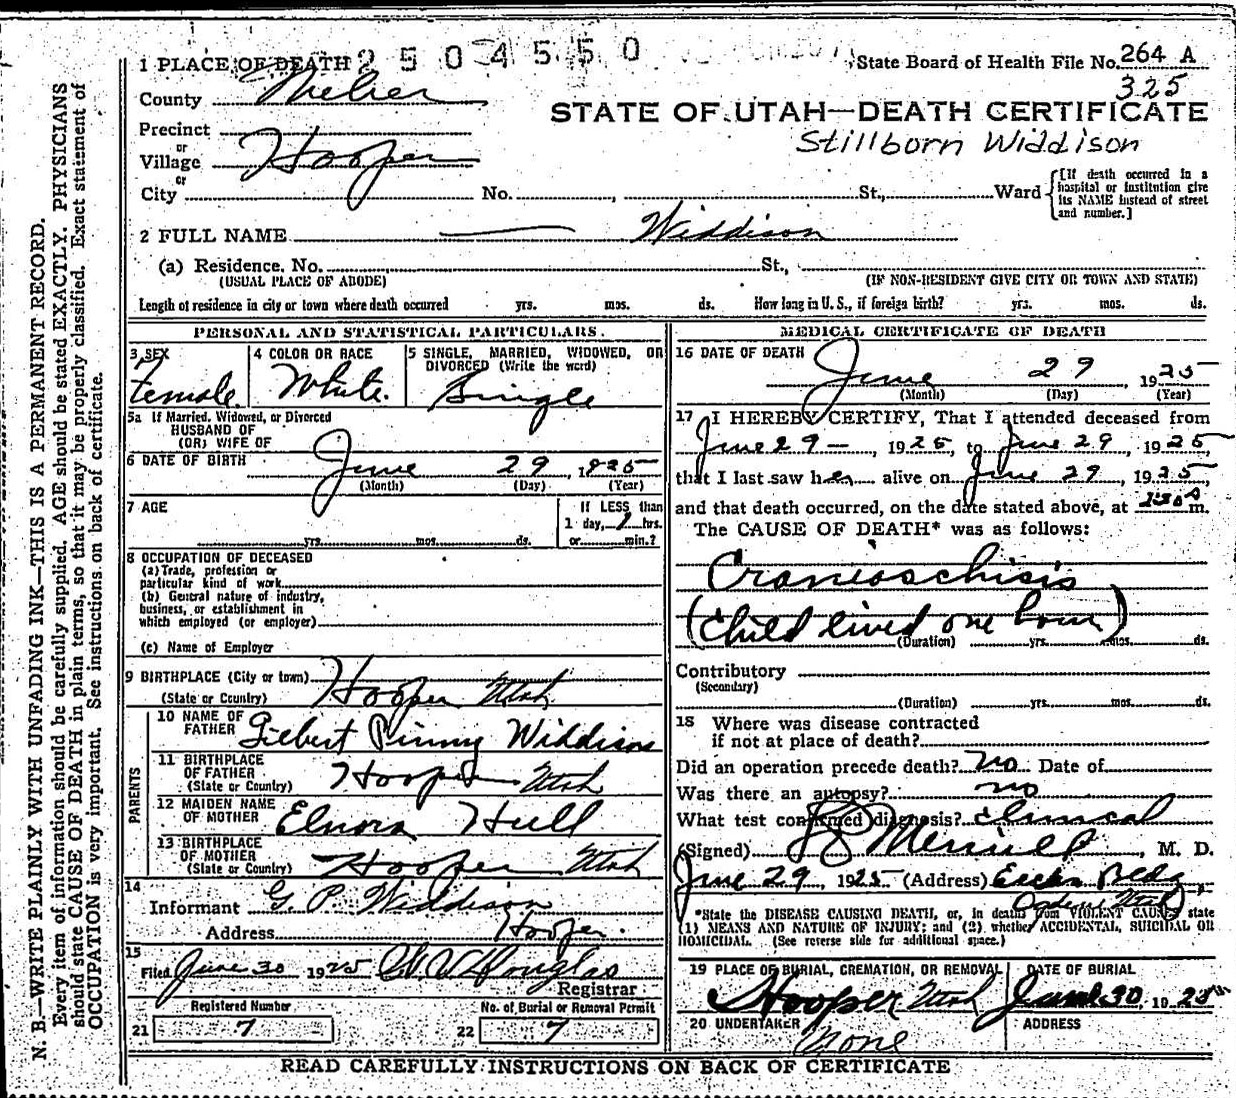 2504550
1 PLACE OF DEATH
State Board of Health File No. 264 A
325
County Weber
STATE OF UTAH—DEATH CERTIFICATE
Stillborn Widdison
Precinct
or
Village Hooper
or
City No. , St., Ward
[If death occurred in a hospital or institution give its NAME instead of street and number.]
2 FULL NAME — Widdison
(a) Residence, No. St.,
(USUAL PLACE OF ABODE) (IF NON-RESIDENT GIVE CITY OR TOWN AND STATE)
Length of residence in city or town where death occurred yrs. mos. ds. How long in U. S., if foreign birth? yrs. mos. ds.
PERSONAL AND STATISTICAL PARTICULARS.
3 SEX
Female
4 COLOR OR RACE
White.
5 SINGLE, MARRIED, WIDOWED, OR
DIVORCED (Write the word)
Single
5a If Married, Widowed, or Divorced
HUSBAND OF
(OR) WIFE OF
6 DATE OF BIRTH June 29, 1925
(Month) (Day) (Year)
7 AGE
yrs. mos. ds.
If LESS than
1 day, 1 hrs.
or min.?
8 OCCUPATION OF DECEASED
(a) Trade, profession or
particular kind of work
(b) General nature of industry,
business, or establishment in
which employed (or employer)
(c) Name of Employer
9 BIRTHPLACE (City or town)
(State or Country) Hooper Utah
PARENTS
10 NAME OF
FATHER Gilbert Pinny Widdison
11 BIRTHPLACE
OF FATHER
(State or Country) Hooper Utah
12 MAIDEN NAME
OF MOTHER Elnora Hull
13 BIRTHPLACE
OF MOTHER
(State or Country) Hooper Utah
14
Informant G. P. Widdison
Address Hooper.
15
Filed June 30 1925 Douglas
Registrar
Registered Number
21 7
No. of Burial or Removal Permit
22 7
MEDICAL CERTIFICATE OF DEATH
16 DATE OF DEATH
June 29, 1925
(Month) (Day) (Year)
17 I HEREBY CERTIFY, That I attended deceased from
June 29 -, 1925, to June 29, 1925,
that I last saw her alive on June 29, 1925,
and that death occurred, on the date stated above, at m.
The CAUSE OF DEATH* was as follows:
Cranioschisis
(Child lived one hour)
(Duration) yrs. mos. ds.
Contributory
(Secondary)
(Duration) yrs. mos. ds.
18 Where was disease contracted
if not at place of death?
Did an operation precede death? No Date of
Was there an autopsy? no
What test confirmed diagnosis? Clinical
(Signed) Merrill, M. D.
June 29, 1925 (Address) Eccles Bldg,
Ogden Utah
*State the DISEASE CAUSING DEATH, or, in deaths from VIOLENT CAUSES, state
(1) MEANS AND NATURE OF INJURY; and (2) whether ACCIDENTAL, SUICIDAL OR
HOMICIDAL. (See reverse side for additional space.)
19 PLACE OF BURIAL, CREMATION, OR REMOVAL
Hooper Utah
DATE OF BURIAL
June 30, 1925
20 UNDERTAKER
None
ADDRESS
READ CAREFULLY INSTRUCTIONS ON BACK OF CERTIFICATE
N. B.—WRITE PLAINLY WITH UNFADING INK—THIS IS A PERMANENT RECORD.
Every item of information should be carefully supplied. AGE should be stated EXACTLY. PHYSICIANS
should state CAUSE OF DEATH in plain terms, so that it may be properly classified. Exact statement of
OCCUPATION is very important. See instructions on back of certificate.